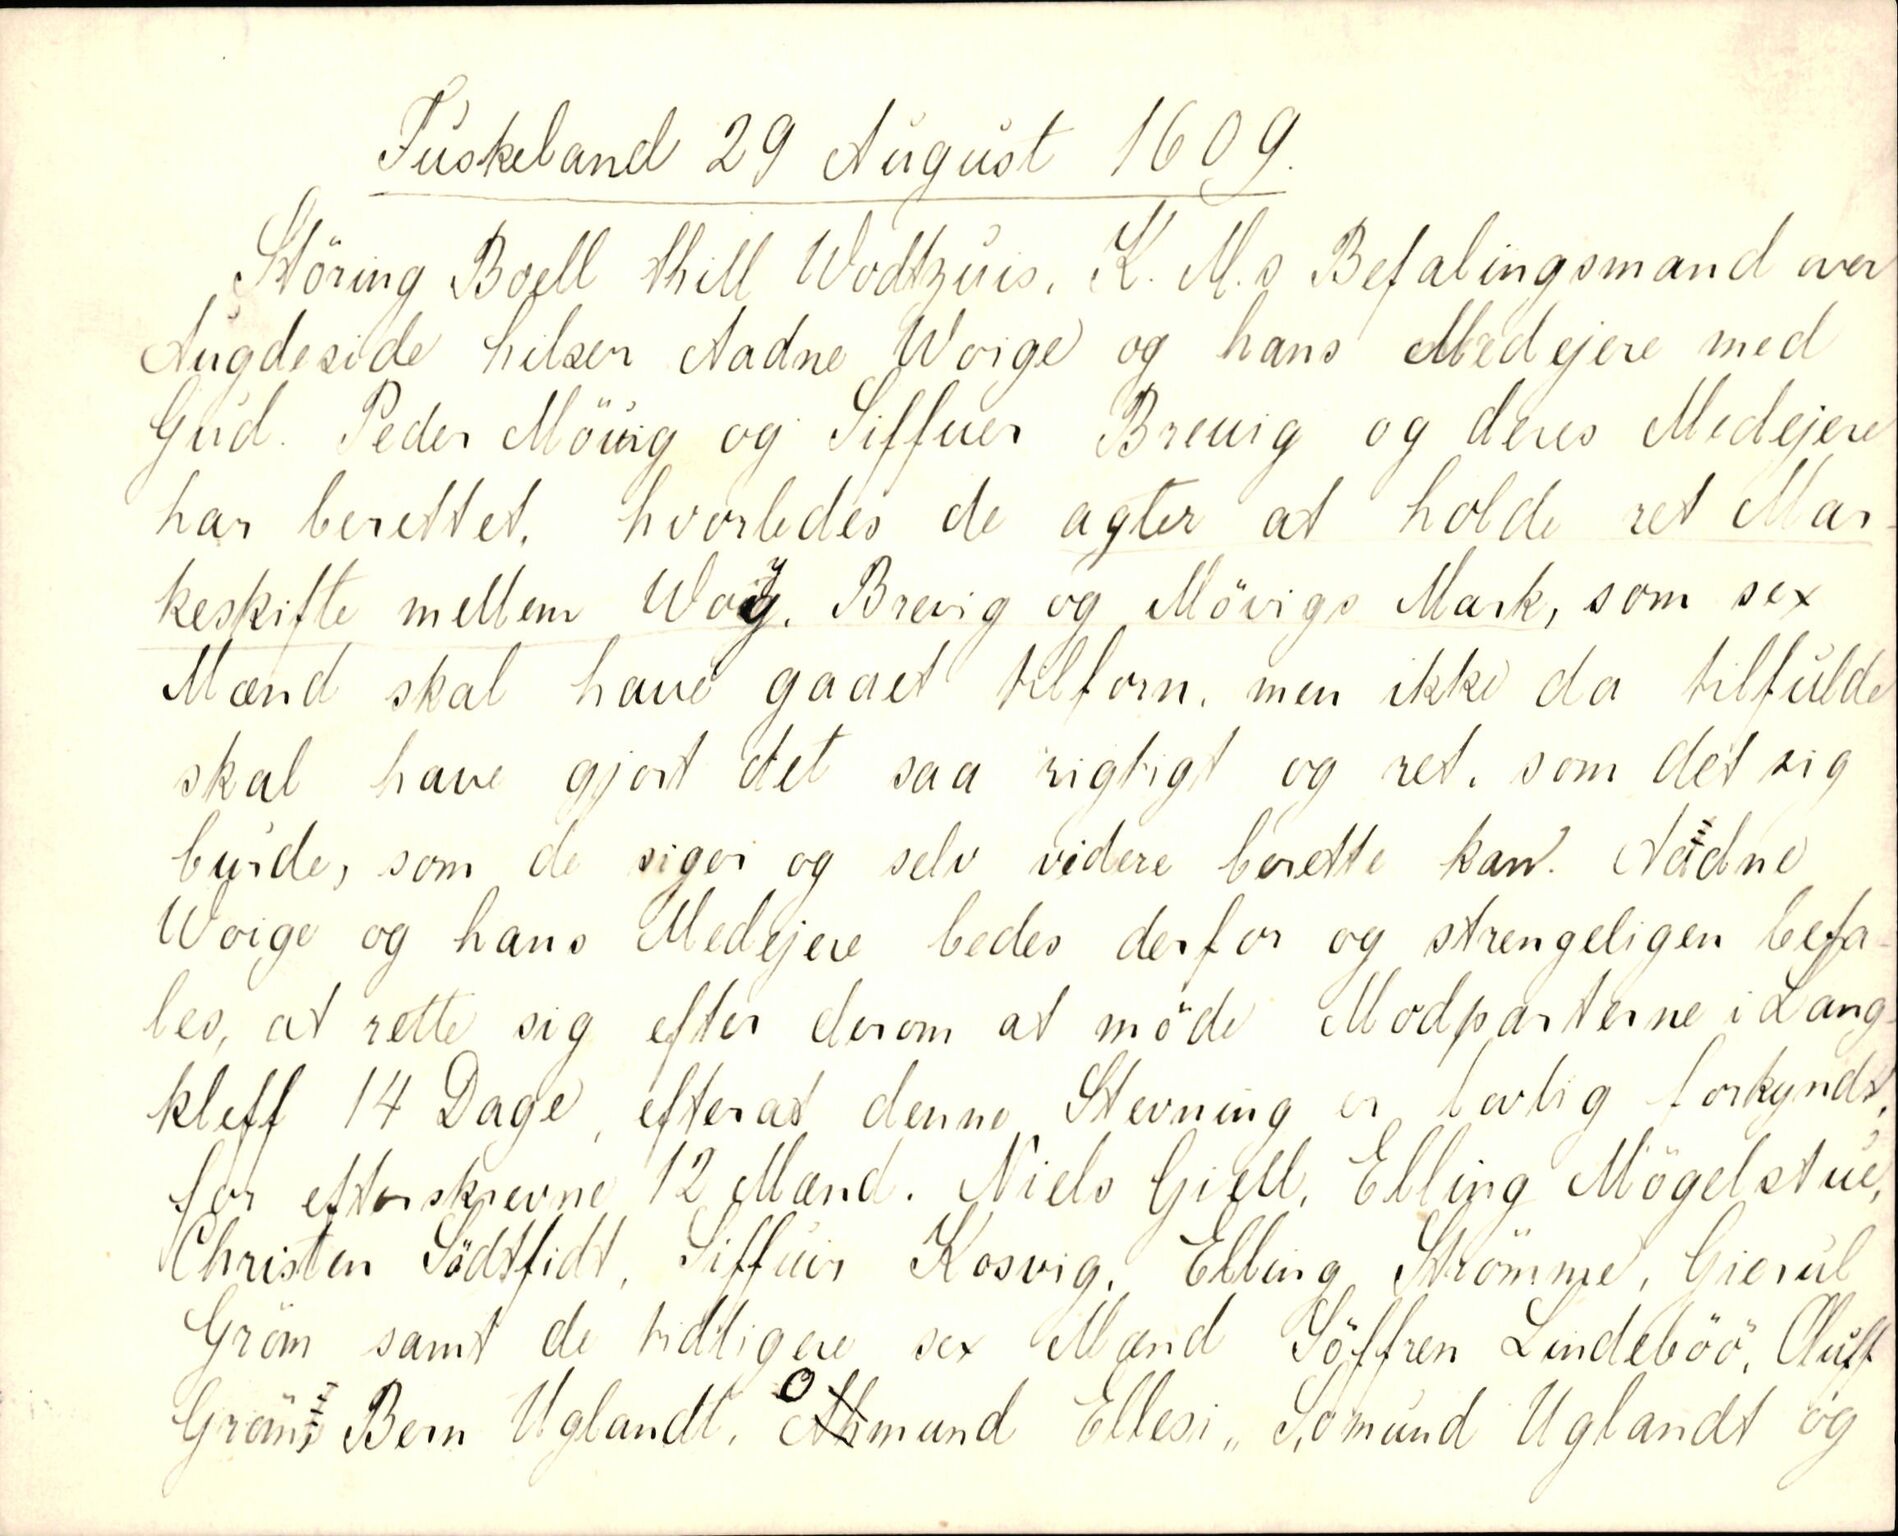 Tuskeland 29 August 1609.
Störing Boell thill Wodtzuis, K. M.s Befalingsmand over
Augdeside hilser Aadne Woige og hans Medejere med
Gud. Peder Möuig og Siffuer Breuig og deres Medejere
har berettet, hvorledes de agter at holde ret Mar-
keskifte mellem Woig, Brevig og Mövigs Mark, som sex
Mænd skal have gaaet tilforn, men ikke da tilfulde
skal have gjort det saa rigtigt og ret, som det sig
burde, som de siger og selv videre berette kan. Aadne
Woige og hans Medejere bedes derfor og strengeligen befa-
les, at rette sig efter derom at möde Modparterne i Lang-
kleff 14 Dage, efterat denne Stevning er lovlig forkyndt,
for efterskrevne 12 Mænd. Niels Giell, Elling Mögelstue,
Christen Södtfidt, Siffuer Kosvig, Elling Strömme, Gierul
Gröm samt de tidligere sex Mænd Söffren Lindeböö, Oluff
Gröm, Bern Uglandt, Omund Ellesi, Somund Uglandt og